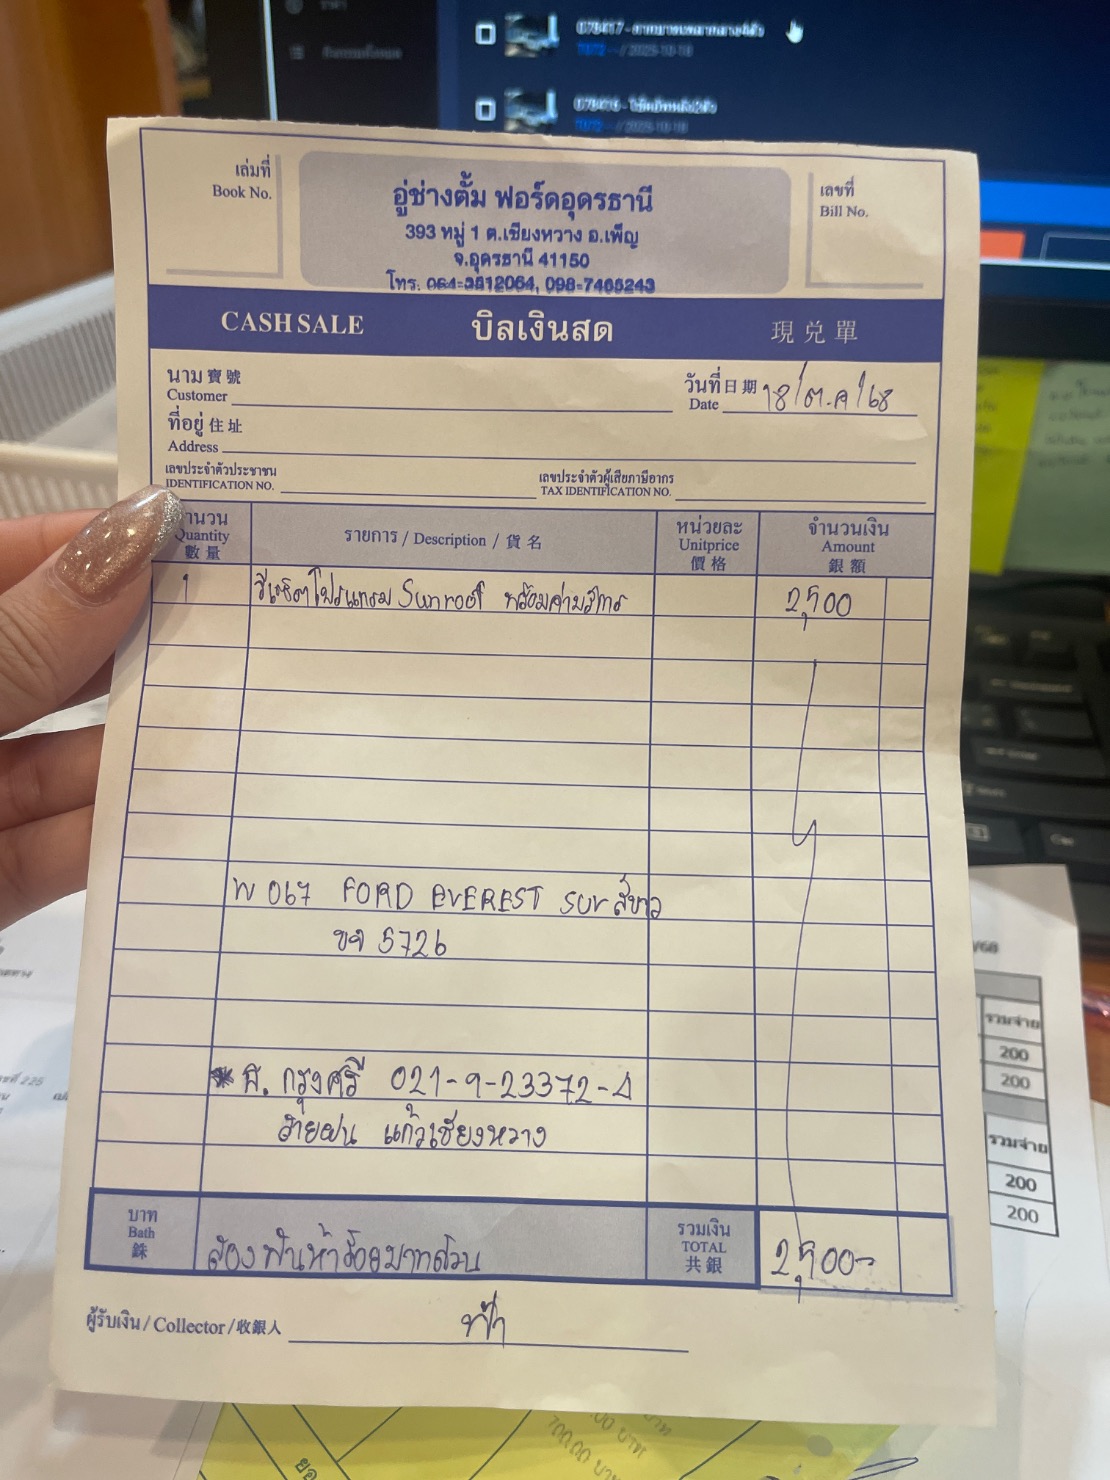 เล่มที่
Book No.
อู่ช่างตั้ม ฟอร์ดอุดรธานี
393 หมู่ 1 ต.เชียงหวาง อ.เพ็ญ
จ.อุดรธานี 41150
โทร. 064-3812064, 098-7465243
เลขที่
Bill No.
CASH SALE บิลเงินสด 現兌單
นาม 寶號
Customer
วันที่ 日期
Date 18/ต.ค/68
ที่อยู่ 住址
Address
เลขประจำตัวประชาชน
IDENTIFICATION NO.
เลขประจำตัวผู้เสียภาษีอากร
TAX IDENTIFICATION NO.
Quantity
數量
รายการ / Description / 貨名
หน่วยละ
Unitprice
價格
จำนวนเงิน
Amount
銀額
1 รีเซ็ตโปรแกรม Sunroof พร้อมค่าบริการ 2,500
W 067 FORD EVEREST SUV สีขาว
ขจ 5726
* ธ. กรุงศรี 021-9-23372-4
สายฝน แก้วเชียงหวาง
บาท
Bath
銖
สองพันห้าร้อยบาทถ้วน
รวมเงิน
TOTAL
共銀
2,500-
ผู้รับเงิน / Collector / 收銀人
รวมจ่าย
200
200
รวมจ่าย
200
200